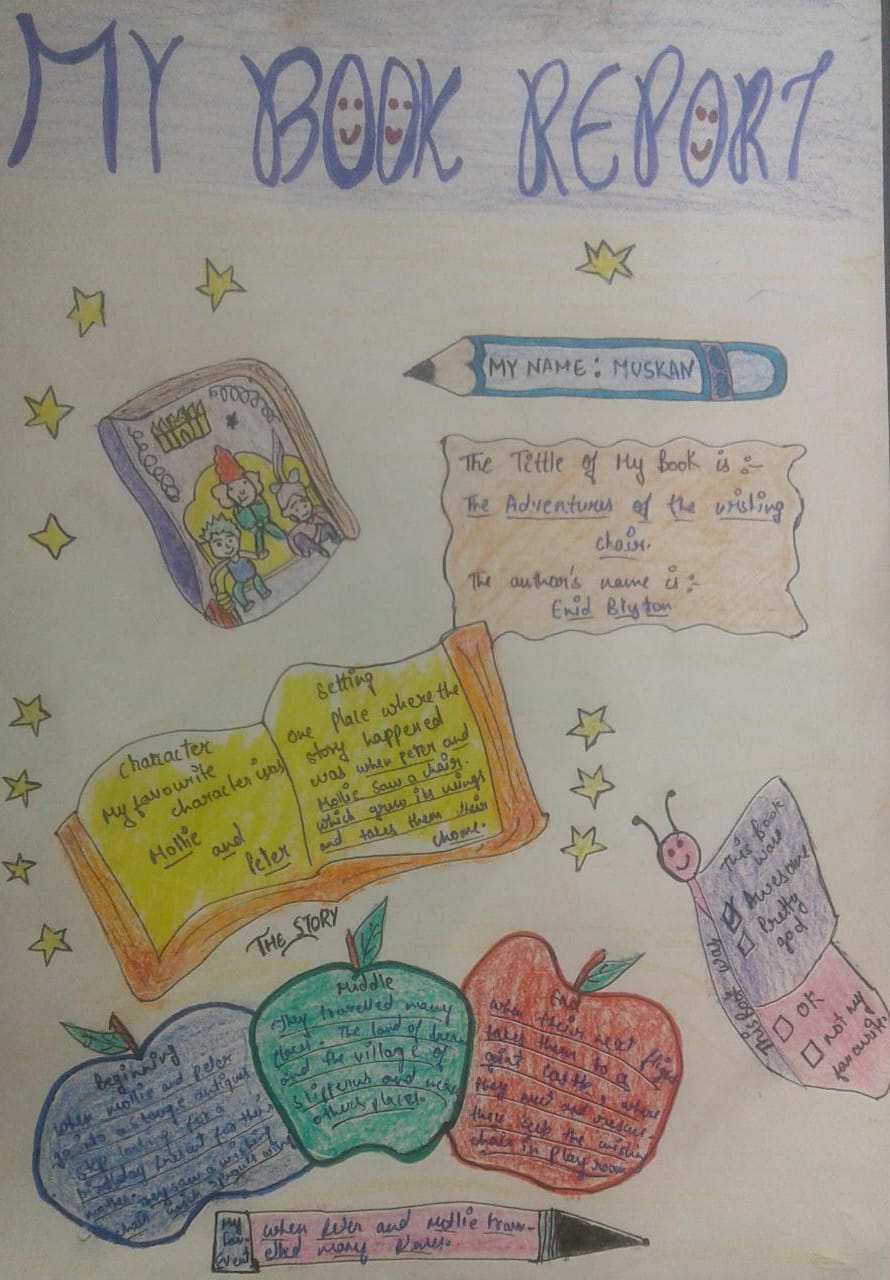 MY BOOK REPORT
MY NAME : MUSKAN
The Tittle of My Book is :-
The Adventures of the wishing
chair.
The author's name is :-
Enid Blyton
Character
My favourite
character was
Mollie and
Peter
Setting
one place where the
story happened
was when Peter and
Mollie saw a chair.
which grew its wings
and takes them their
home.
This Book
was
Awesome
Pretty
god
OK
not my
favourite
This Book was
THE STORY
Beginning
when mollie and Peter
go to a strange antiques
shop looking for a
birthday present for their
mother, they saw a wishing
chair which wings
Middle
They travelled many
places. The land of dream
and the village of
slipperus and many
others places.
End
when their next flight
takes them to a
gaint castle, where
they meet and rescue.
the wishing
chair in playroom
My
Fav-
Event
when Peter and Mollie trav-
elled many places.